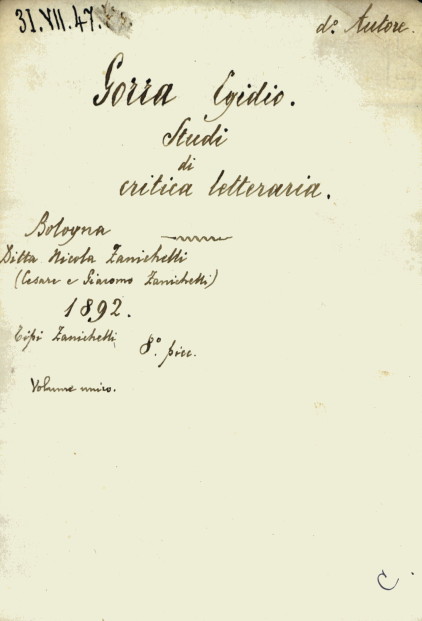 31.VII.47.
d.º Autore.
Gorra Egidio.
Studi
di
critica letteraria.
Bologna
Ditta Nicola Zanichelli
(Cesare e Giacomo Zanichelli)
1892.
Tipi Zanichelli
8.º picc.
Volume unico.
C